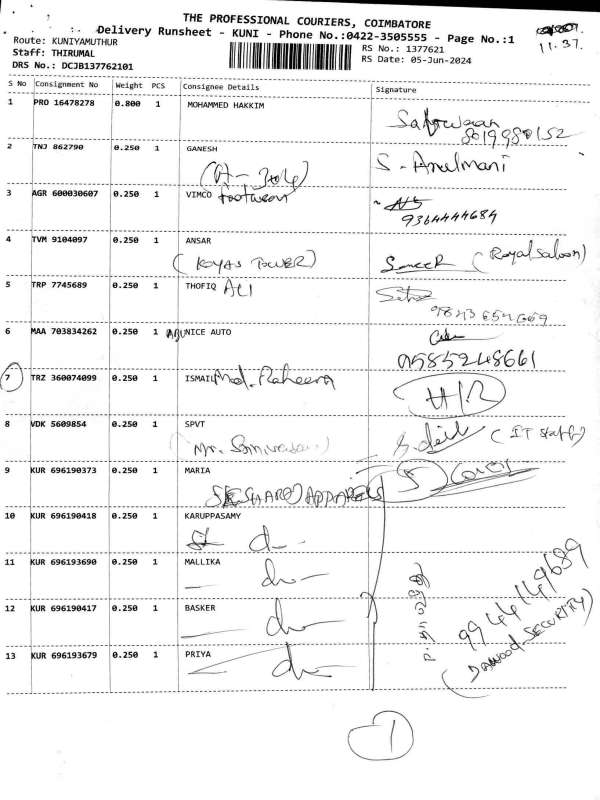 THE PROFESSIONAL COURIERS, COIMBATORE
Delivery Runsheet - KUNI - Phone No.:0422-3505555 - Page No.:1
11.37.
Route: KUNIYAMUTHUR
RS No.: 1377621
Staff: THIRUMAL
RS Date: 05-Jun-2024
DRS No.: DCJB137762101
S No Consignment No Weight PCS Consignee Details Signature
1 PRO 16478278 0.800 1 MOHAMMED HAKKIM
8019980152
2 TNJ 862790 0.250 1 GANESH S. Arulmani
3 AGR 600030607 0.250 1 VIMCO footwear
9364444684
4 TVM 9104097 0.250 1 ANSAR
(KOYAS TOWER) Sameer (Royal Saloon)
5 TRP 7745689 0.250 1 THOFIQ ALI
9843654669
6 MAA 703834262 0.250 1 NICE AUTO
9585248661
7 TRZ 360074099 0.250 1 ISMAIL Md. Raheem
8 VDK 5609854 0.250 1 SPVT
(Mr. Srinivasan) (IT staff)
9 KUR 696190373 0.250 1 MARIA
APPARELS 5 Cover
10 KUR 696190418 0.250 1 KARUPPASAMY
11 KUR 696193690 0.250 1 MALLIKA
12 KUR 696190417 0.250 1 BASKER
9944149689
(Dawood SECURITY)
13 KUR 696193679 0.250 1 PRIYA
1